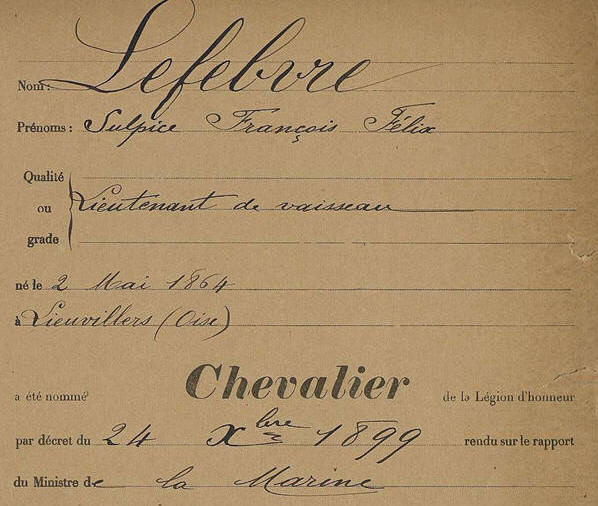 Nom: Lefebvre
Prénoms: Sulpice François Félix
Qualité
ou Lieutenant de vaisseau
grade
né le 2 Mai 1864
à Lieuvillers (Oise)
a été nommé Chevalier de la Légion d'honneur
par décret du 24 Xbre 1899 rendu sur le rapport
du Ministre de la Marine